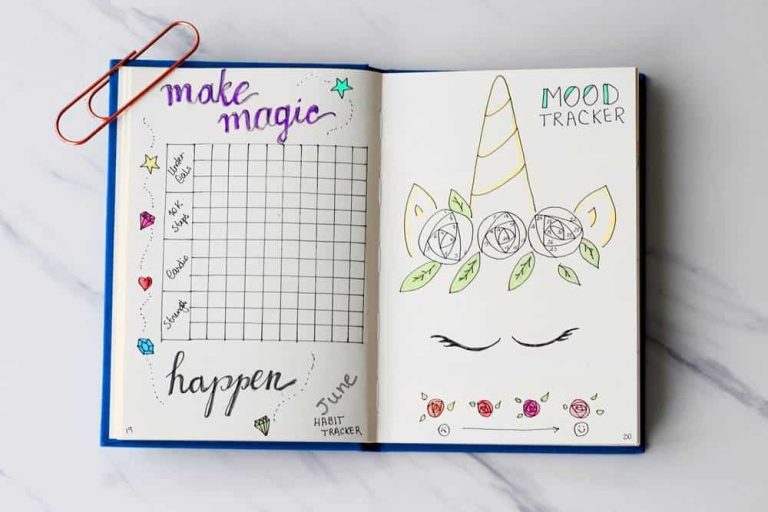 make
magic
Under
Cals
10K
Steps
Cardio
Strength
happen
June
HABIT
TRACKER
19
MOOD
TRACKER
20